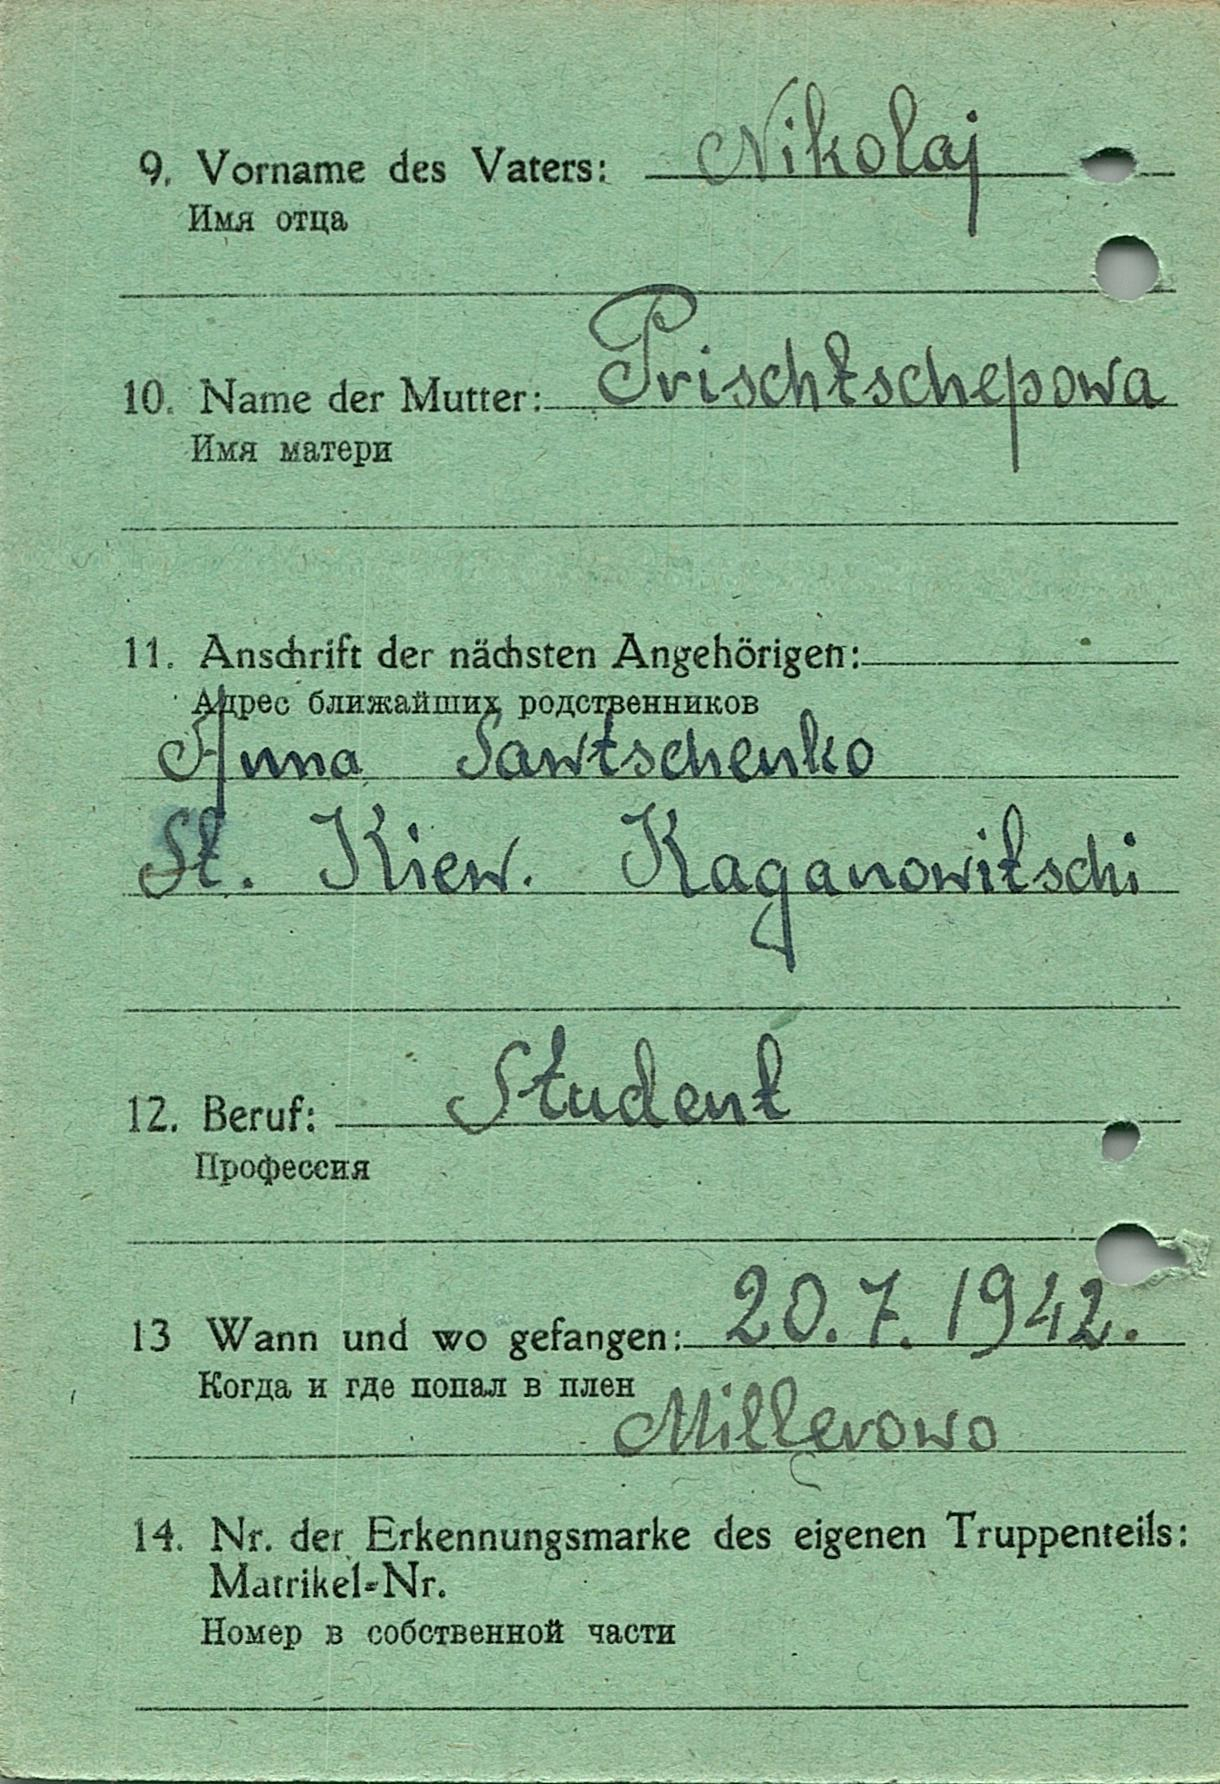 9. Vorname des Vaters: Nikolaj
Имя отца
10. Name der Mutter: Prischtschepowa
Имя матери
11. Anschrift der nächsten Angehörigen:
Адрес ближайших родственников
Anna Sawtschenko
St. Kiew. Kaganowitschi
12. Beruf: Student
Профессия
13 Wann und wo gefangen: 20.7.1942.
Когда и где попал в плен
Millerowo
14. Nr. der Erkennungsmarke des eigenen Truppenteils:
Matrikel-Nr.
Номер в собственной части